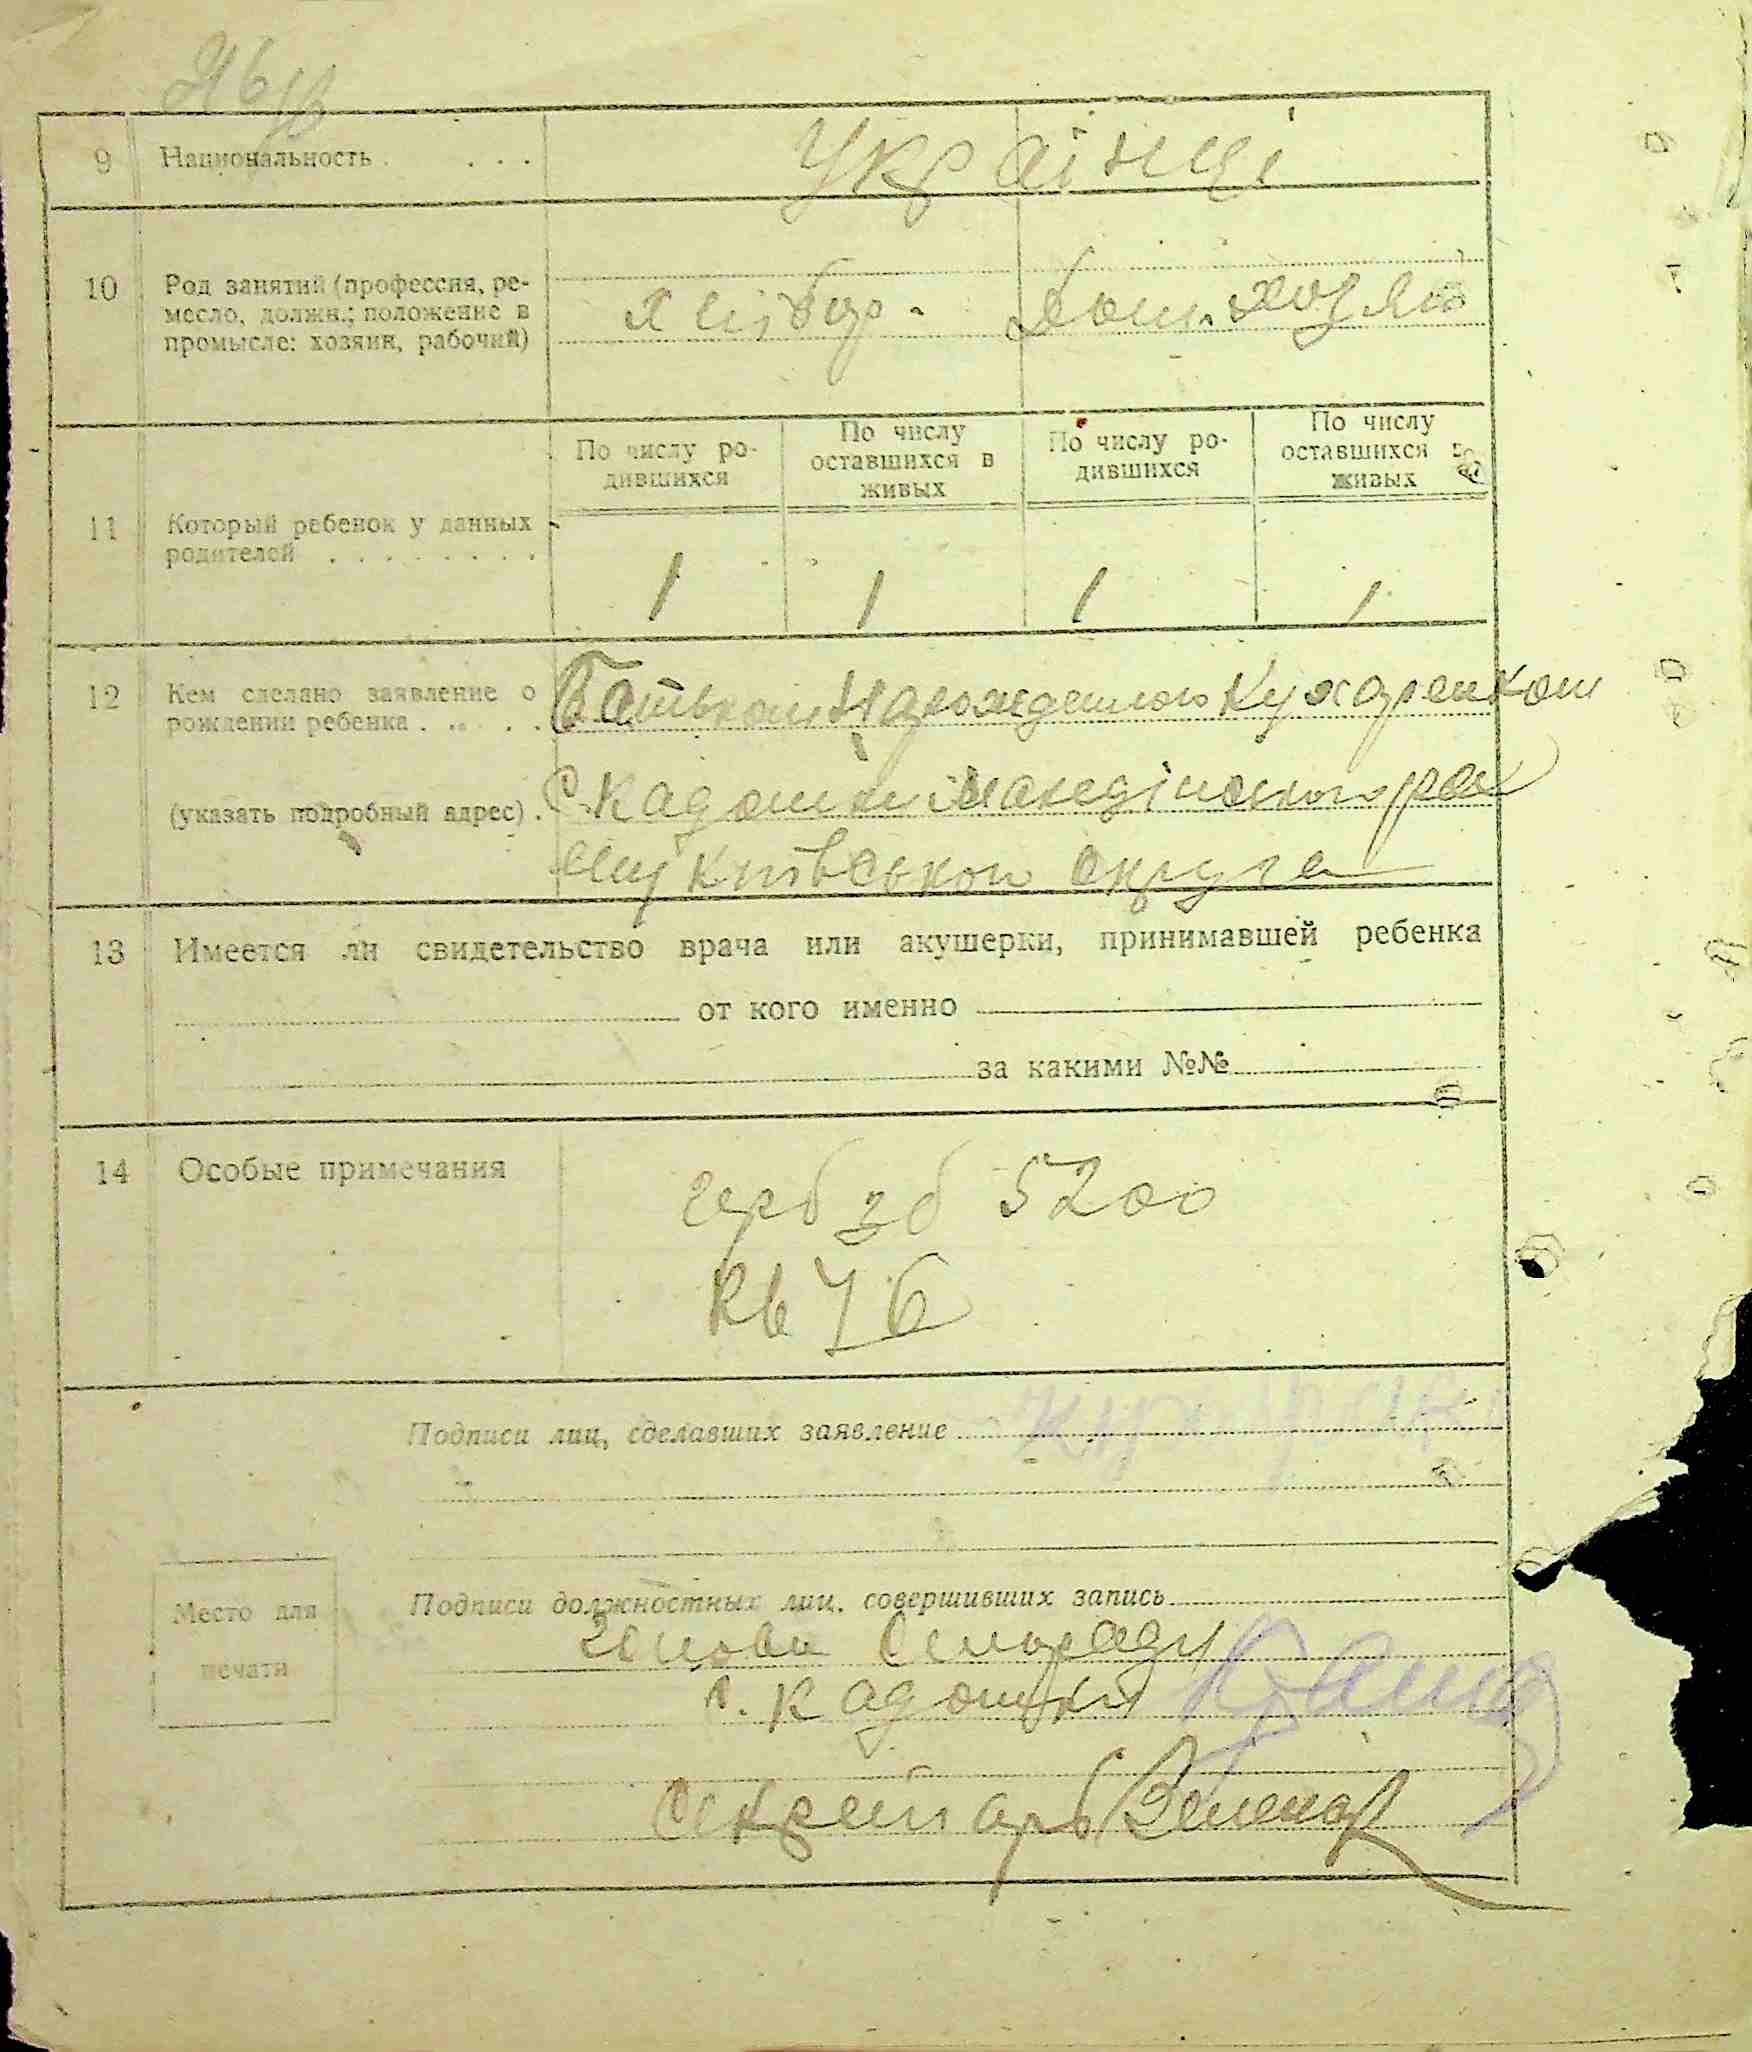 9 Национальность . . . . Українці
10 Род занятий (профессия, ре-
месло, должн.; положение в
промысле: хозяин, рабочий)
Хлібор. Дом. хозяй
По числу ро-
дившихся
По числу
оставшихся в
живых
По числу ро-
дившихся
По числу
оставшихся в
живых
11 Который ребенок у данных
родителей . . . . . . . .
1 1 1 1
12 Кем сделано заявление о
рождении ребенка . . . .
Батьком Нарожденного Кухаренком
(указать подробный адрес) .
с. Кадомки
округа
13 Имеется ли свидетельство врача или акушерки, принимавшей ребенка
от кого именно
за какими №№
14 Особые примечания
герб зб 5200
Кв 76
Подписи лиц, сделавших заявление
Место для
печати
Подписи должностных лиц, совершивших запись
Голова Сельради
с. Кадомки
Секретарь